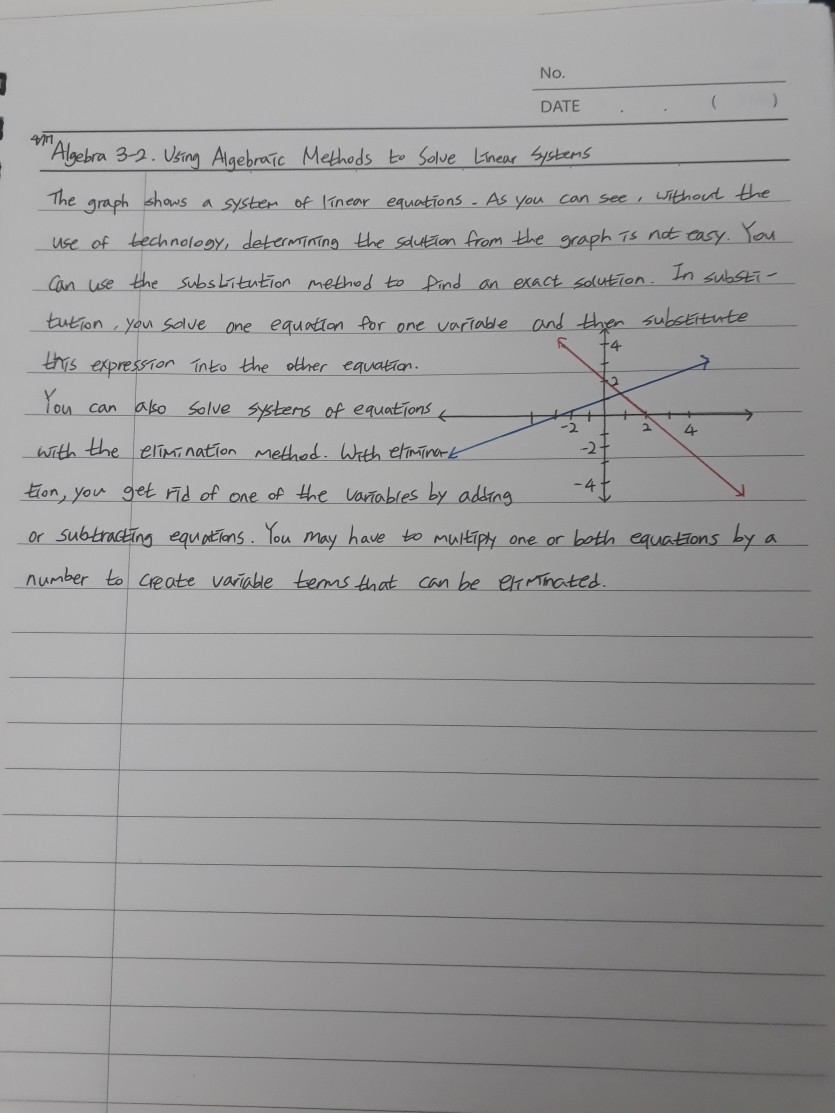 No.
DATE . . ( )
Algebra 3-2. Using Algebraic Methods to Solve Linear Systems
The graph shows a system of linear equations. As you can see, without the
use of technology, determining the solution from the graph is not easy. You
can use the substitution method to find an exact solution. In substi-
tution, you solve one equation for one variable and then substitute
this expression into the other equation.
4
2
You can also solve systems of equations
-2 2 4
with the elimination method. With elimina-
-2
tion, you get rid of one of the variables by adding
-4
or subtracting equations. You may have to multiply one or both equations by a
number to create variable terms that can be eliminated.